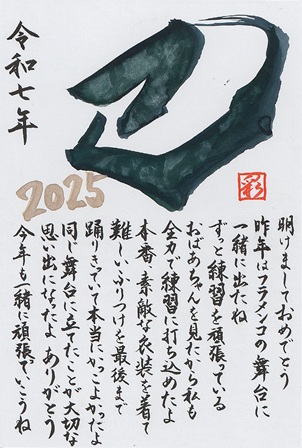 令和七年
巳
2025
彩
明けましておめでとう
昨年はフラメンコの舞台に
一緒に出たね
ずっと練習を頑張っている
おばあちゃんを見たから私も
全力で練習に打ち込めたよ
本番、素敵な衣装を着て
難しいふりつけを最後まで
踊りきっていて本当にかっこよかったよ
同じ舞台に立てたことが大切な
思い出になったよ ありがとう
今年も一緒に頑張っていこうね